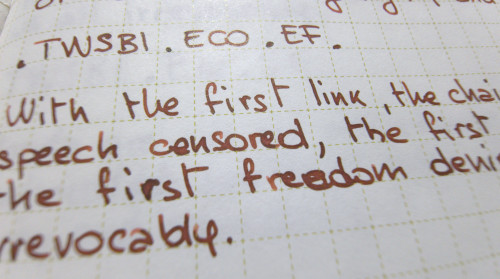 . TWSBI . ECO . EF .
With the first link, the chai
speech censored, the first
the first freedom deni
rrevocably.